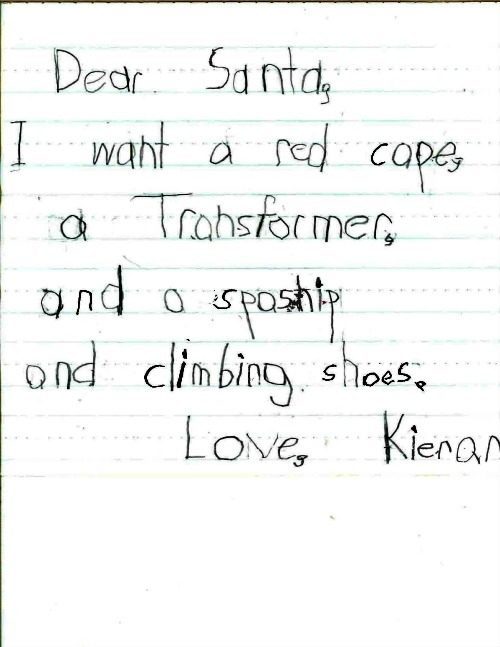 Dear Santa,
I want a red cape,
a Transformer,
and a spaship
and climbing shoes.
Love, Kieran